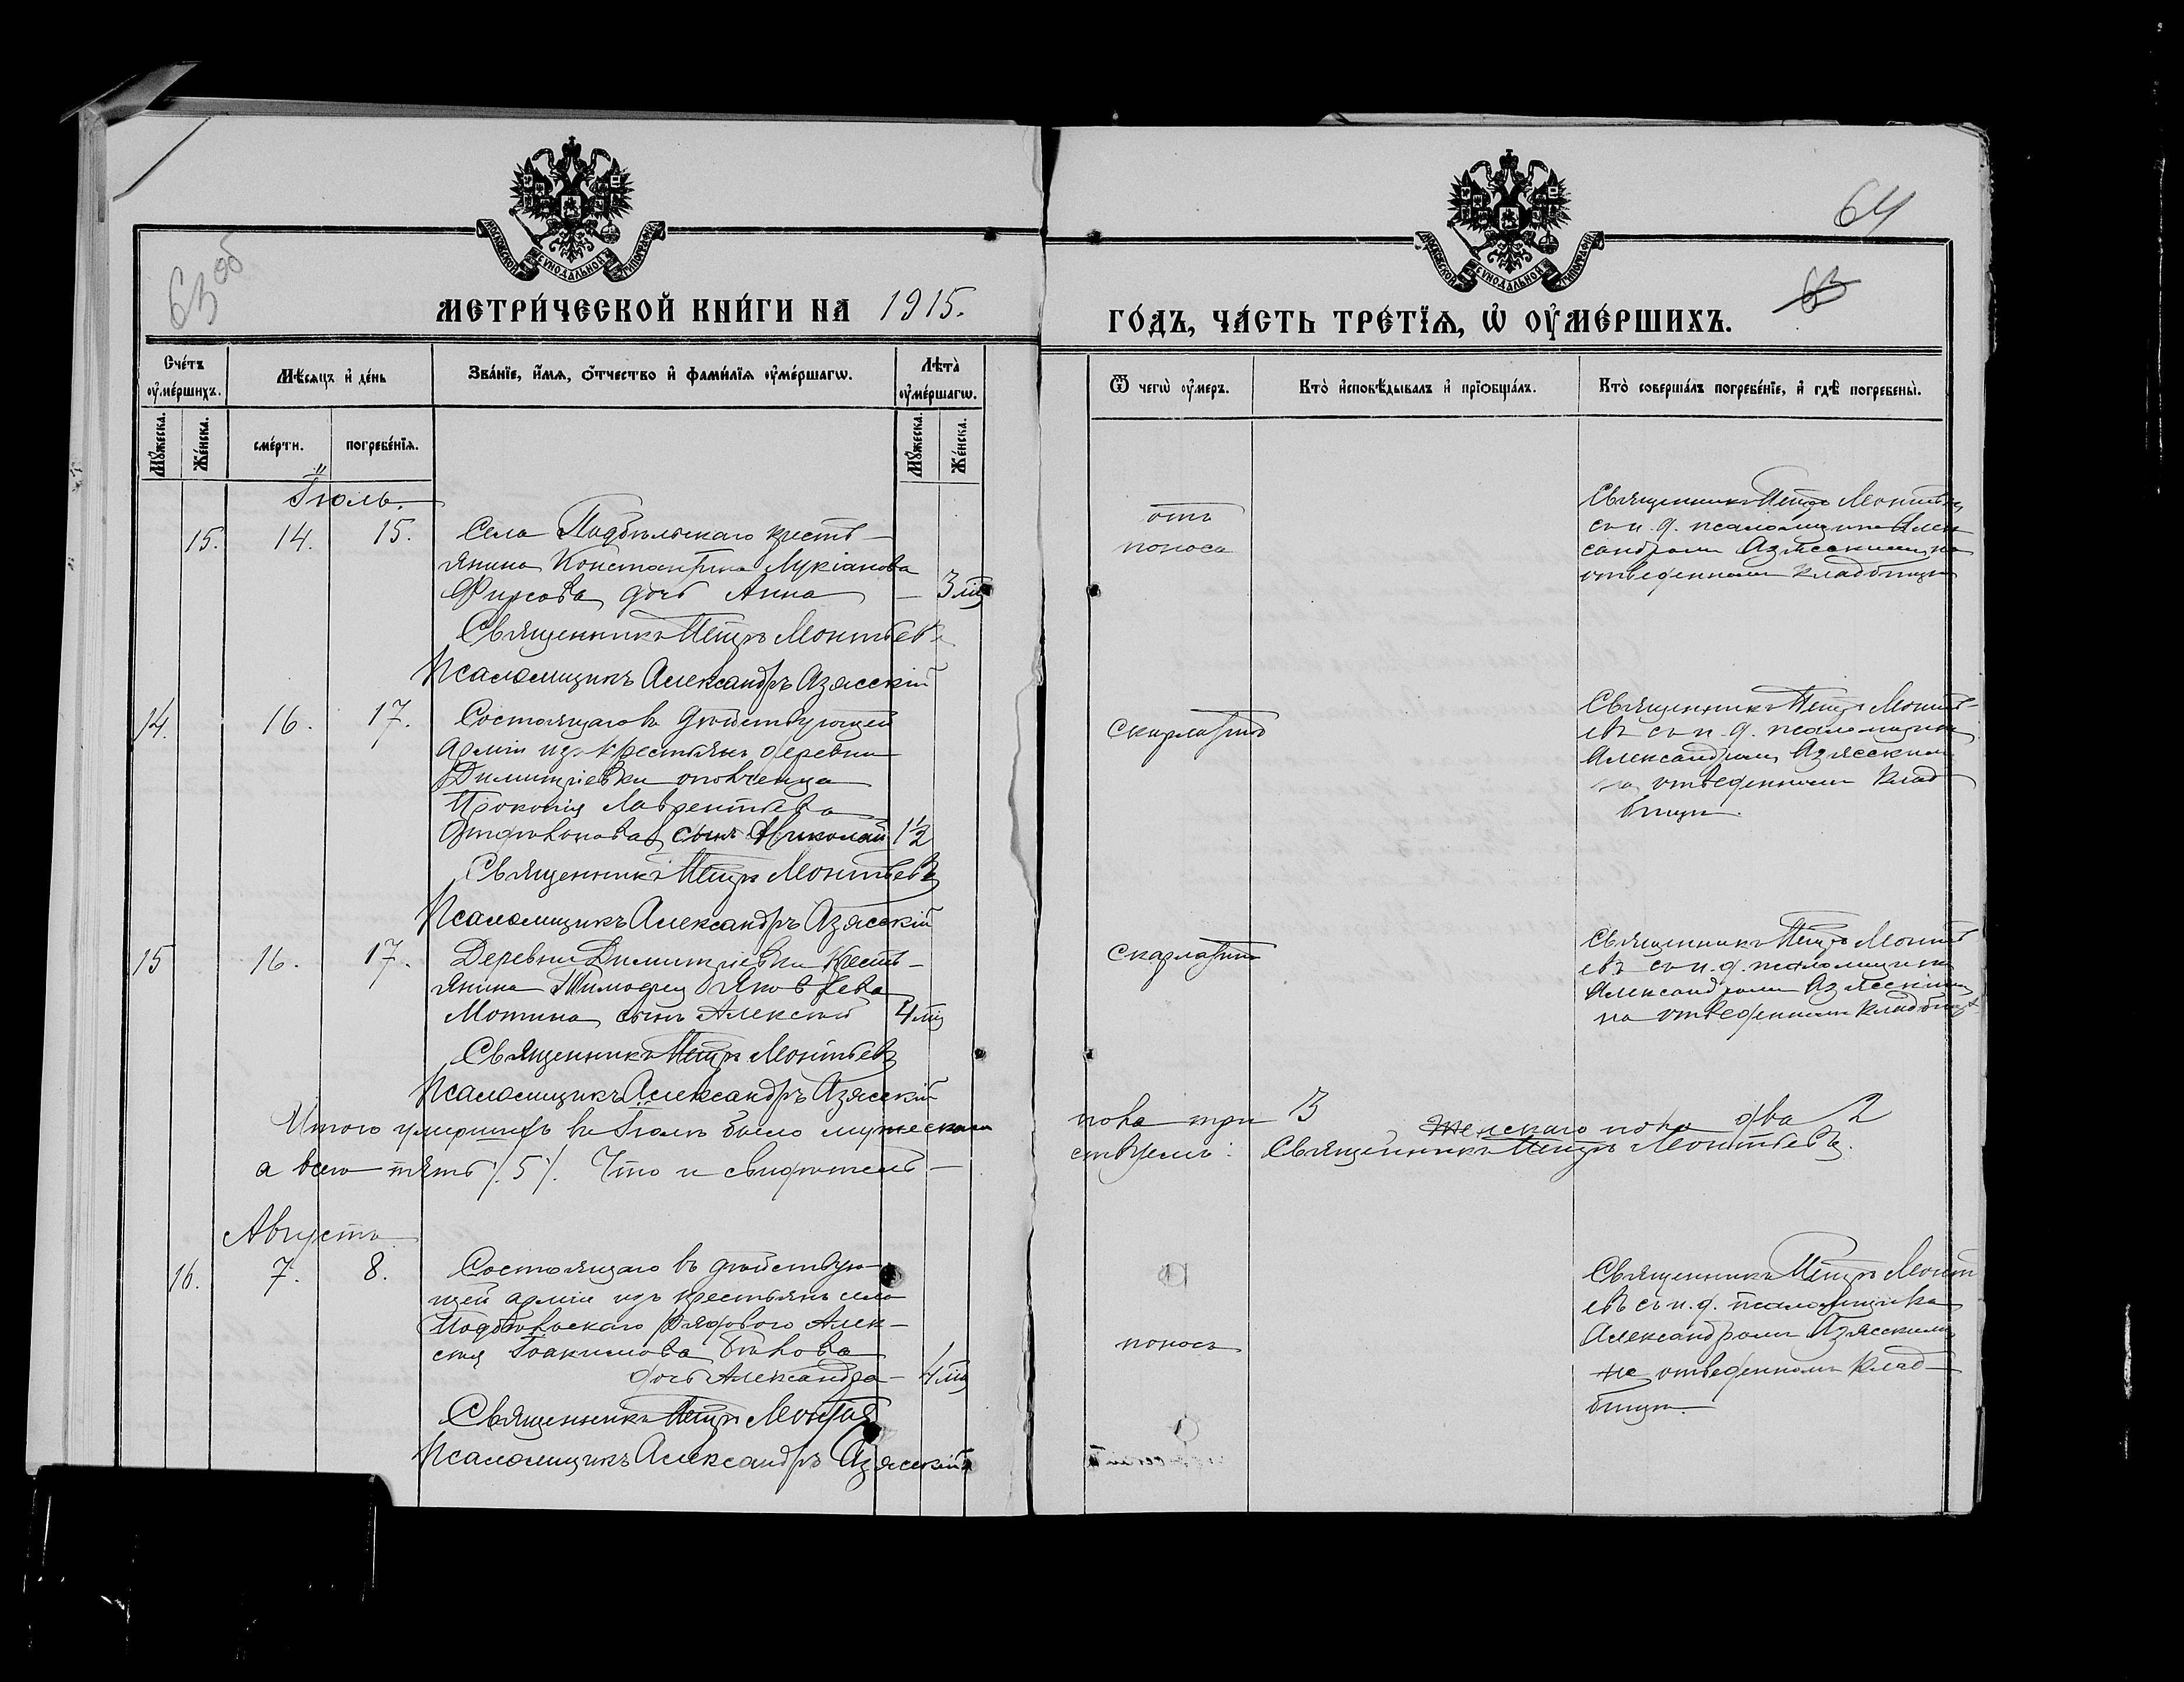 64
63 об
63
МОСКОВСКОЙ СУНОДАЛЬНОЙ ТИПОГРАФІИ
МОСКОВСКОЙ СУНОДАЛЬНОЙ ТИПОГРАФІИ
МЕТРИ́ЧЕСКОЙ КНИ́ГИ НА 1915.
ГО́ДЪ, ЧА́СТЬ ТРЕ́ТЇѦ, Ѡ ОУ҆МЕ́РШИХЪ.
Сче́тъ оу҆ме́ршихъ.
Мѣ́сяцъ и҆ де́нь
Зва́нїе, и҆́мѧ, ѻ҆́тчество и҆ фами́лїѧ оу҆ме́ршагѡ.
Лѣ́та оу҆ме́ршагѡ.
Ѿ чегѡ̀ оу҆́меръ.
Кто̀ и҆сповѣ́дывалъ и҆ прїѻбща́лъ.
Кто̀ соверша́лъ погребе́нїе, и҆ гдѣ̀ погребены̀.
Мꙋ́жеска.
Же́нска.
сме́рти.
погребе́нїѧ.
Мꙋ́жеска.
Же́нска.
Іюль.
15. 14. 15. Села Подбѣльскаго кресть-
янина Константина Лукіанова
Фирсова дочь Анна — 3 мѣ
Священникъ Петръ Леонтьевъ
Псаломщикъ Александръ Азясскій
отъ
поноса
Священникъ Петръ Леонтьев
съ и. д. псаломщика Алек
сандромъ Азясскимъ на
отведенномъ кладбищѣ
14. 16. 17. Состоящаго въ дѣйствующей
арміи изъ крестьянъ деревни
Димитріевки ополченца
Прокопія Лаврентьева
сынъ Николай 1½
Священникъ Петръ Леонтьевъ
Псаломщикъ Александръ Азясскій
скарлатина
Священникъ Петръ Леонть-
евъ съ и. д. псаломщика
Александромъ Азясскимъ
на отведенномъ клад
бищѣ.
15 16. 17. Деревни Димитріевки кресть-
янина Тимофея Яковлева
Мотина сынъ Алексѣй 4 мѣ
Священникъ Петръ Леонтьевъ
Псаломщикъ Александръ Азясскій
скарлатина
Священникъ Петръ Леонть
евъ съ и. д. псаломщика
Александромъ Азясскимъ
на отведенномъ кладбищѣ
Итого умершихъ въ Іюлѣ было мужескаго
пола три 3 женскаго пола два 2
а всего пять /. 5 /. Что и свидѣтель-
ствуемъ: Священникъ Петръ Леонтьевъ.
Августъ
16. 7. 8. Состоящаго въ дѣйствую-
щей арміи изъ крестьянъ села
Подбѣльскаго рядового Алек-
сѣя Іоакимова Бѣлова
дочь Александра — 4 мѣ
Священникъ Петръ Леонтьевъ
Псаломщикъ Александръ Азясскій
поносъ
Священникъ Петръ Леонть
евъ съ и. д. псаломщика
Александромъ Азясскимъ
на отведенномъ клад-
бищѣ.